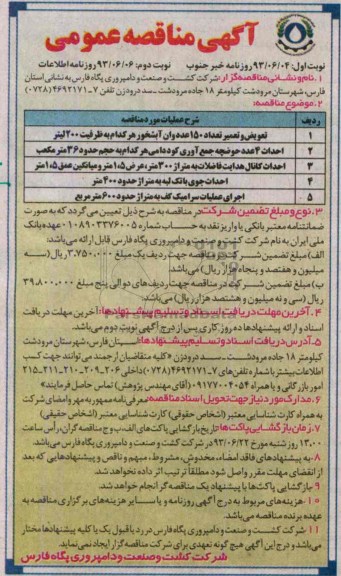 آگهی مناقصه عمومی
نوبت اول: ۹۳/۰۶/۰۴ روزنامه خبر جنوب نوبت دوم: ۹۳/۰۶/۰۶ روزنامه اطلاعات
۱. نام و نشانی مناقصه گزار: شرکت کشت و صنعت و دامپروری پگاه فارس به نشانی استان
فارس، شهرستان مرودشت کیلومتر ۱۸ جاده مرودشت ـ سد درودزن تلفن ۷ـ۴۶۹۲۱۷۱ (۰۷۲۸)
۲. موضوع مناقصه:
ردیف شرح عملیات مورد مناقصه
۱ تعویض و تعمیر تعداد ۱۵۰ عدد وان آبشخور هر کدام به ظرفیت ۲۰۰ لیتر
۲ احداث ۴ عدد حوضچه جمع آوری کود دامی هر کدام به حجم حدود ۳۶ متر مکعب
۳ احداث کانال هدایت فاضلاب به متراژ ۳۰۰ متر، عرض ۱۰۵ متر و میانگین عمق ۱۰۵ متر
۴ احداث جوی بانک لبه به متراژ حدود ۴۰۰ متر
۵ اجرای عملیات سرامیک کف به متراژ حدود ۶۰۰ متر مربع
۳. نوع و مبلغ تضمین شرکت در مناقصه به شرح ذیل تعیین می گردد که به صورت
ضمانتنامه معتبر بانکی یا واریز نقد به حساب شماره ۰۱۰۸۹۰۳۳۷۶۰۰۵ عهده بانک
ملی ایران به نام شرکت کشت و صنعت و دامپروری پگاه فارس قابل ارائه می باشد:
الف) مبلغ تضمین شرکت در مناقصه جهت ردیف یک مبلغ ۳.۷۵۰.۰۰۰ ریال (سه
میلیون و هفتصد و پنجاه هزار ریال) می باشد.
ب) مبلغ تضمین شرکت در مناقصه جهت ردیف های دو الی پنج مبلغ ۳۹.۸۰۰.۰۰۰
ریال (سی و نه میلیون و هشتصد هزار ریال) می باشد.
۴. آخرین مهلت دریافت اسناد و تسلیم پیشنهادها: آخرین مهلت دریافت
اسناد و ارائه پیشنهادها ده روز کاری پس از درج آگهی نوبت دوم می باشد.
۵. آدرس دریافت اسناد و تسلیم پیشنهادها: استان فارس، شهرستان مرودشت
کیلومتر ۱۸ جاده مرودشت ـ سد درودزن «کلیه متقاضیان ارجمند می توانند جهت کسب
اطلاعات بیشتر با شماره تلفن های ۷ـ۴۶۹۲۱۷۱ (۰۷۲۸) داخلی ۲۰۶ـ۲۰۹ـ۲۱۰ـ۲۱۱ـ۲۱۵
امور بازرگانی و یا همراه ۰۹۱۷۷۰۰۴۰۵۴ (آقای مهندس پژوهش) تماس حاصل فرمایند»
۶. مدارک مورد نیاز جهت تحویل اسناد مناقصه: معرفی نامه ممهور به مهر و امضای شرکت
به همراه کارت شناسایی معتبر (اشخاص حقوقی) کارت شناسایی معتبر (اشخاص حقیقی)
۷. زمان بازگشایی پاکت ها: تاریخ بازگشایی پاکت های الف، ب و ج مناقصه گران، رأس ساعت
۱۳.۰۰ روز شنبه مورخ ۹۳/۰۶/۲۲ در شرکت کشت و صنعت و دامپروری پگاه فارس می باشد.
۸ـ به پیشنهادهای فاقد امضاء، مخدوش، مشروط، مبهم و ناقص و پیشنهادهایی که بعد
از انقضای مهلت مقرر واصل شود مطلقاً ترتیب اثر داده نخواهد شد.
۹ـ بازگشایی پاکت ها با پیشنهاد یک مناقصه گر انجام خواهد شد.
۱۰ـ هزینه های مربوط به درج آگهی روزنامه و یا سایر هزینه های برگزاری مناقصه به
عهده برنده مناقصه می باشد.
۱۱ـ شرکت کشت و صنعت و دامپروری پگاه فارس در رد یا قبول یک یا کلیه پیشنهادها مختار
می باشد و درج این آگهی هیچ گونه تعهدی برای شرکت مناقصه گزار ایجاد نمی نماید.
شرکت کشت و صنعت و دامپروری پگاه فارس